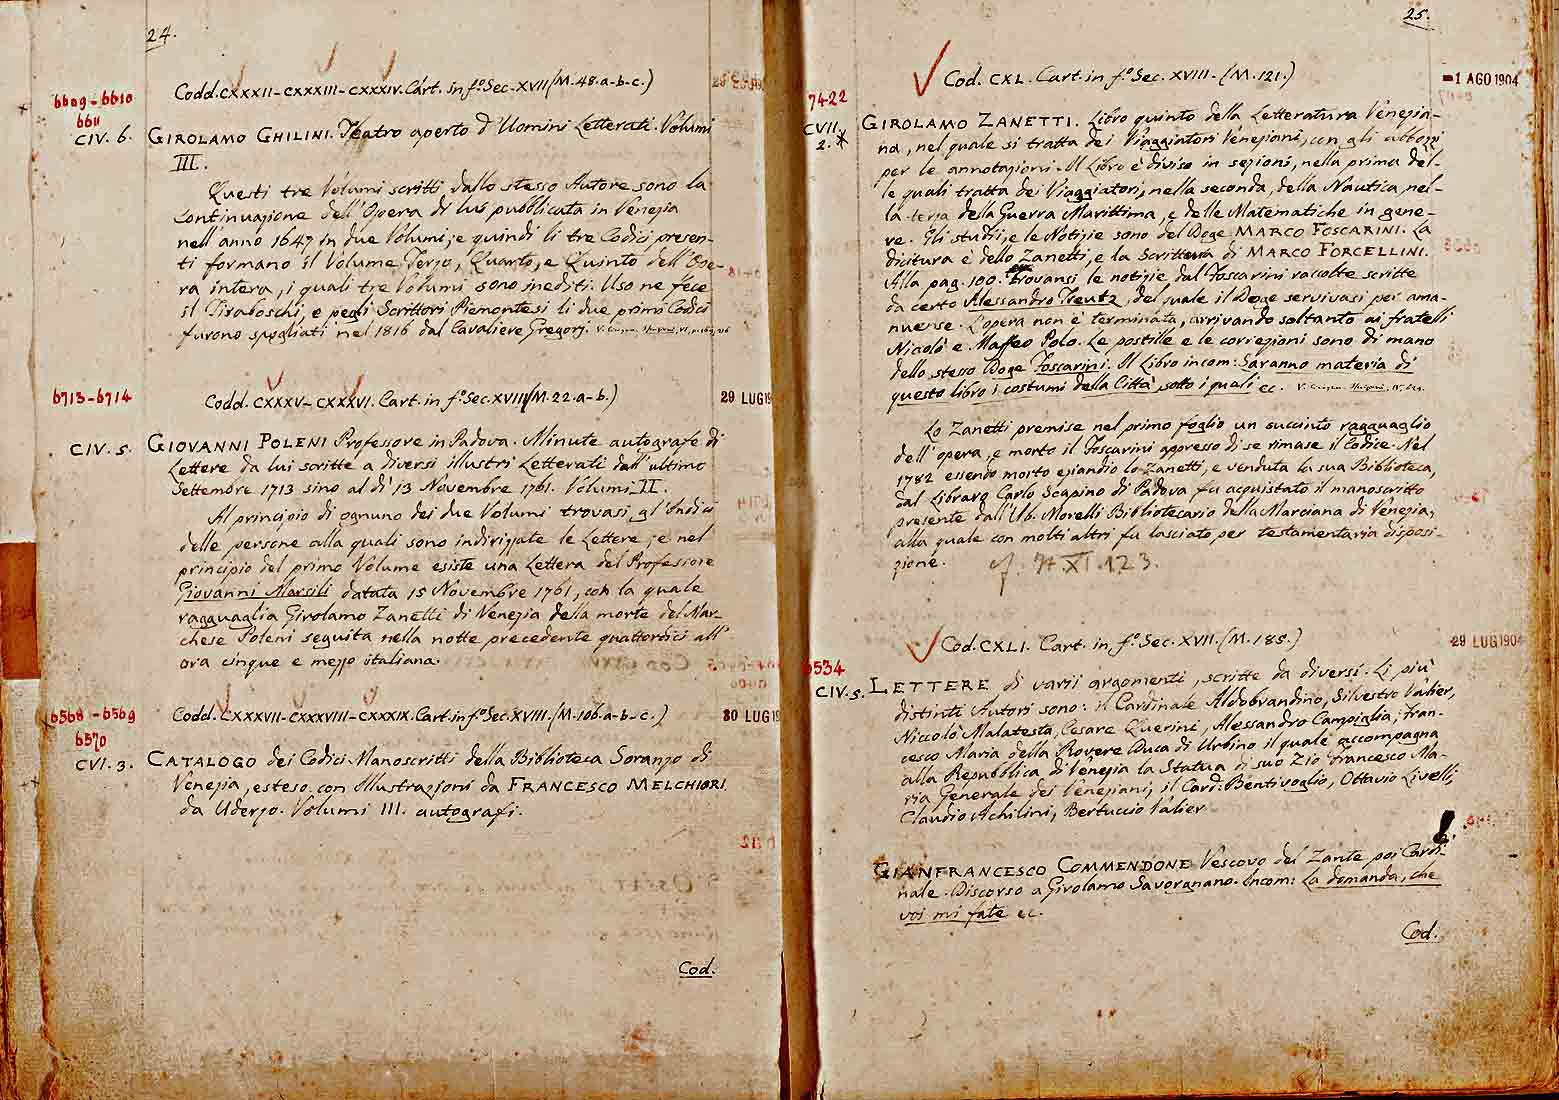 24.
Codd. CXXXII - CXXXIII - CXXXIV. Cart. in f.º Sec. XVII (M. 48. a-b-c.)
6609 - 6610
6611
CIV. 6.
GIROLAMO GHILINI. Teatro aperto d'Uomini Letterati. Volumi
III.
Questi tre Volumi scritti dallo stesso Autore sono la
continuazione dell'Opera di lui pubblicata in Venezia
nell'anno 1647 in due Volumi; e quindi li tre Codici presen-
ti formano il Volume Terzo, Quarto, e Quinto dell'Ope-
ra intera, i quali tre Volumi sono inediti. Uso ne fece
il Tiraboschi, e pegli Scrittori Piemontesi li due primi Codici
furono spogliati nel 1816 dal Cavaliere Gregorj.
6713 - 6714
Codd. CXXXV - CXXXVI. Cart. in f.º Sec. XVIII (M. 22. a-b.)
29 LUG 19
CIV. 5.
GIOVANNI POLENI Professore in Padova. Minute autografe di
Lettere da lui scritte a diversi illustri Letterati dall'ultimo
Settembre 1713 sino al dì 13 Novembre 1761. Volumi II.
Al principio di ognuno dei due Volumi trovasi gl'Indici
delle persone alla quali sono indirizzate le Lettere; e nel
principio del primo Volume esiste una Lettera del Professore
Giovanni Marsili datata 15 Novembre 1761, con la quale
ragguaglia Girolamo Zanetti di Venezia della morte del Mar-
chese Poleni seguita nella notte precedente quattordici all'
ora cinque e mezzo italiana.
6568 - 6569
6570
Codd. CXXXVII - CXXXVIII - CXXXIX. Cart. in f.º Sec. XVIII. (M. 106. a-b-c.)
30 LUG 19
CVI. 3.
CATALOGO dei Codici Manoscritti della Biblioteca Soranzo di
Venezia, esteso con Illustrazioni da FRANCESCO MELCHIORI
da Uderzo. Volumi III. autografi.
Cod.
25.
Cod. CXL. Cart. in f.º Sec. XVIII. (M. 121.)
- 1 AGO 1904
7422
CVII.
2. *
GIROLAMO ZANETTI. Libro quinto della Letteratura Venezia-
na, nel quale si tratta dei Viaggiatori Veneziani, con gli abbozzi
per le annotazioni. Il Libro è diviso in sezioni, nella prima del-
le quali tratta dei Viaggiatori, nella seconda, della Nautica, nel-
la terza della Guerra Marittima, e delle Matematiche in gene-
re. Gli studj, e le Notizie sono del Doge MARCO FOSCARINI. La
dicitura è dello Zanetti, e la Scrittura di MARCO FORCELLINI.
Alla pag. 100. trovansi le notizie dal Foscarini raccolte scritte
da certo Alessandro Treutz, del quale il Doge servivasi per ama-
nuense. L'opera non è terminata, arrivando soltanto ai fratelli
Nicolò e Maffeo Polo. Le postille e le correzioni sono di mano
dello stesso Doge Foscarini. Il Libro incom: Saranno materia di
questo libro i costumi della Città sotto i quali ec.
Lo Zanetti premise nel primo foglio un succinto ragguaglio
dell'opera, e morto il Foscarini appresso di se rimase il Codice. Nel
1782 essendo morto eziandio lo Zanetti, e venduta la sua Biblioteca,
dal Librajo Carlo Scapino di Padova fu acquistato il manoscritto
presente dall'Ab. Morelli Bibliotecario della Marciana di Venezia,
alla quale con molti altri fu lasciato per testamentaria disposi-
zione. cf. It. XI. 123.
Cod. CXLI. Cart. in f.º Sec. XVII. (M. 185.)
29 LUG 1904
6534
CIV. 5.
LETTERE di varii argomenti, scritte da diversi. Li più
distinti Autori sono: il Cardinale Aldobrandino, Silvestro Valier,
Niccolò Malatesta, Cesare Querini, Alessandro Campiglia; Fran-
cesco Maria della Rovere Duca di Urbino il quale accompagna
alla Repubblica di Venezia la Statua di suo Zio Francesco Ma-
ria Generale dei Veneziani; il Card: Bentivoglio, Ottavio Livelli,
Claudio Achilini, Bertuccio Valier.
GIANFRANCESCO COMMENDONE Vescovo del Zante poi Cardi-
nale. Discorso a Girolamo Savorgnano. Incom: La domanda, che
voi mi fate ec.
Cod.